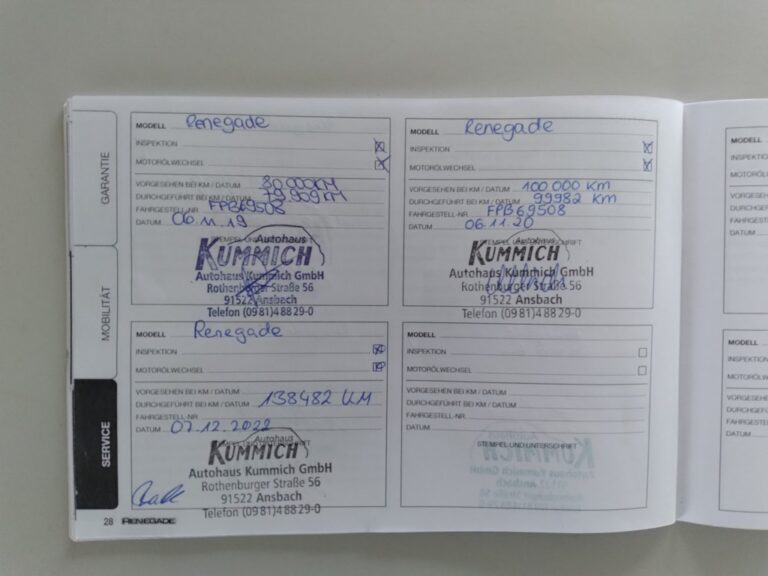 GARANTIE
MOBILITÄT
SERVICE
MODELL Renegade
INSPEKTION
MOTORÖLWECHSEL
VORGESEHEN BEI KM / DATUM 80 000KM
DURCHGEFÜHRT BEI KM / DATUM 79 909 KM
FAHRGESTELL-NR. FPB69508
DATUM 06.11.19
STEMPEL UND UNTERSCHRIFT
Autohaus
KUMMICH
Autohaus Kummich GmbH
Rothenburger Straße 56
91522 Ansbach
Telefon (0981) 4 88 29-0
MODELL Renegade
INSPEKTION
MOTORÖLWECHSEL
VORGESEHEN BEI KM / DATUM 100 000 Km
DURCHGEFÜHRT BEI KM / DATUM 99982 KM
FAHRGESTELL-NR. FPB69508
DATUM 06.11.20
STEMPEL UND UNTERSCHRIFT
Autohaus
KUMMICH
Autohaus Kummich GmbH
Rothenburger Straße 56
91522 Ansbach
Telefon (0981) 4 88 29-0
MODELL Renegade
INSPEKTION
MOTORÖLWECHSEL
VORGESEHEN BEI KM / DATUM
DURCHGEFÜHRT BEI KM / DATUM 138482 KM
FAHRGESTELL-NR.
DATUM 07.12.2022
STEMPEL UND UNTERSCHRIFT
Autohaus
KUMMICH
Autohaus Kummich GmbH
Rothenburger Straße 56
91522 Ansbach
Telefon (0981) 4 88 29-0
MODELL
INSPEKTION
MOTORÖLWECHSEL
VORGESEHEN BEI KM / DATUM
DURCHGEFÜHRT BEI KM / DATUM
FAHRGESTELL-NR.
DATUM
STEMPEL UND UNTERSCHRIFT
28 RENEGADE
MODELL
INSPEKTION
MOTORÖLWE
VORGESEHEN
DURCHGEFÜH
FAHRGESTELL
DATUM
MODELL
INSPEKTIO
MOTORÖL
VORGESEH
DURCHGEF
FAHRGEST
DATUM